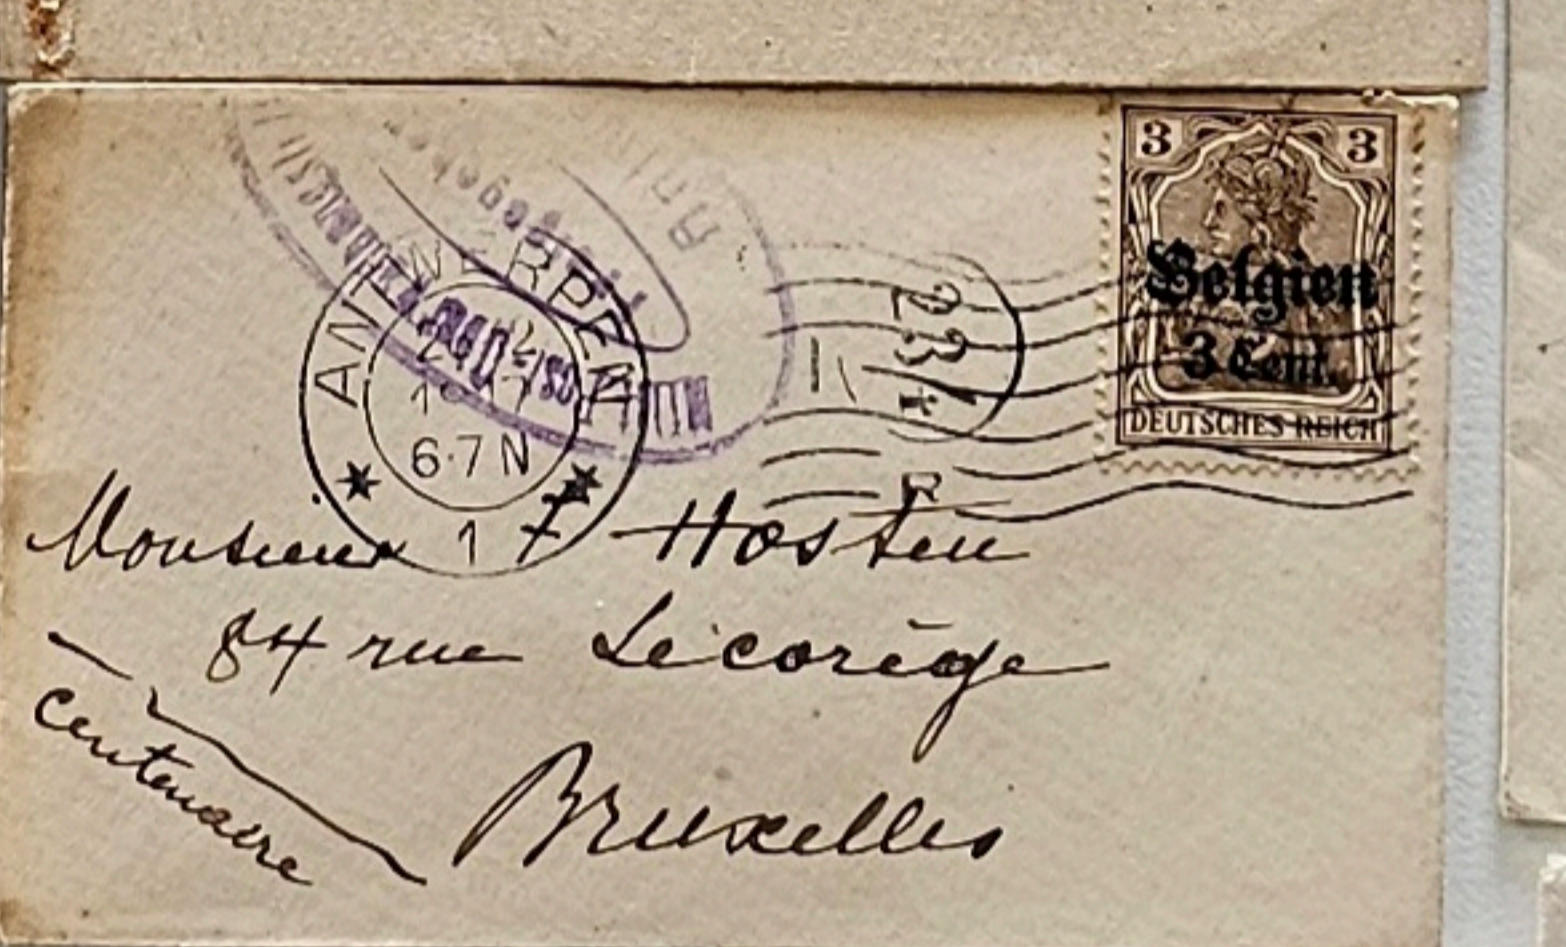 3 3
Belgien
3 Cent.
DEUTSCHES REICH
ANTWERPEN
6-7 N
1
23
Monsieur Hosten
84 rue Lecorège
Bruxelles
centenaire